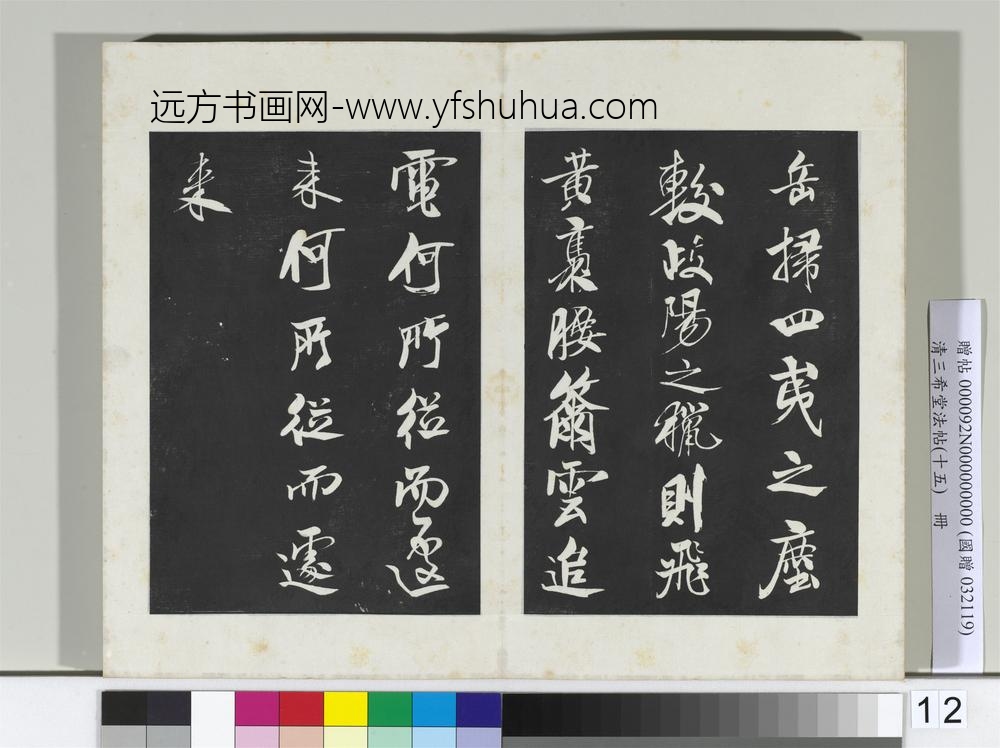 远方书画网-www.yfshuhua.com
岳掃四夷之塵
較岐陽之獵則飛
黃褭腰籋雲追
電何所從而遽
來何所從而遽
來
贈帖 0000092N000000000 (國贈 032119)
清三希堂法帖(十五) 冊
12